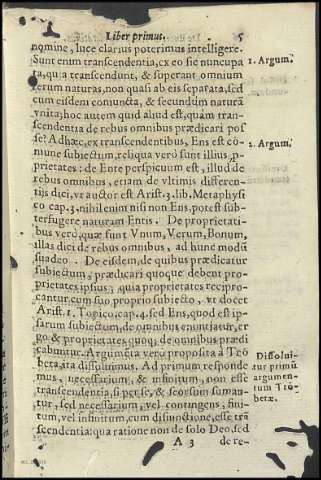 Liber primus. 5
nomine, luce clarius poterimus intelligere.
Sunt enim transcendentia, ex eo sic nuncupa
ta, quia transcendunt, & superant omnium
rerum naturas, non quasi ab eis separata, sed
cum eisdem coniuncta, & secundum naturã
vnita; hoc autem quid aliud est, quàm tran-
scendentia de rebus omnibus prædicari pos
se? Adhæc, ex transcendentibus, Ens est cõ-
mune subiectum, reliqua verò sunt illius, p-
prietates: de Ente perspicuum est, illud de
rebus omnibus, etiam de vltimis differen-
tijs dici, vt auctor est Arist. 3. lib. Metaphysi
co cap. 3. nihil enim nisi non Ens, potest sub-
terfugere naturam Entis. De proprietati-
bus verò, quæ sunt Vnum, Verum, Bonum,
illas dici de rebus omnibus, ad hunc modũ
suadeo. De eisdem, de quibus prædicatur
subiectum, prædicari quoque debent pro-
prietates ipsius; quia proprietates recipro-
cantur cum suo proprio subiecto, vt docet
Arist. 1. Topico. cap. 4. sed Ens, quod est ip-
sarum subiectum, de omnibus enuntiatur, er
go & proprietates quoq; de omnibus prædi
cabuntur. Argumẽta verò proposita à Teõ
beta, ita dissoluimus. Ad primum responde
mus, necessarium, & infinitum, non esse
transcendentia, si per se, & seorsum suman-
tur, sed necessarium, vel contingens, fini-
tum, vel infinitum, cum disiunctione, esse trã
scendentia: qua ratione non de solo Deo, sed
A 3 de re-
1. Argum.
2. Argum.
Dissolui-
tur primũ
argumen-
tum Teo-
betæ.